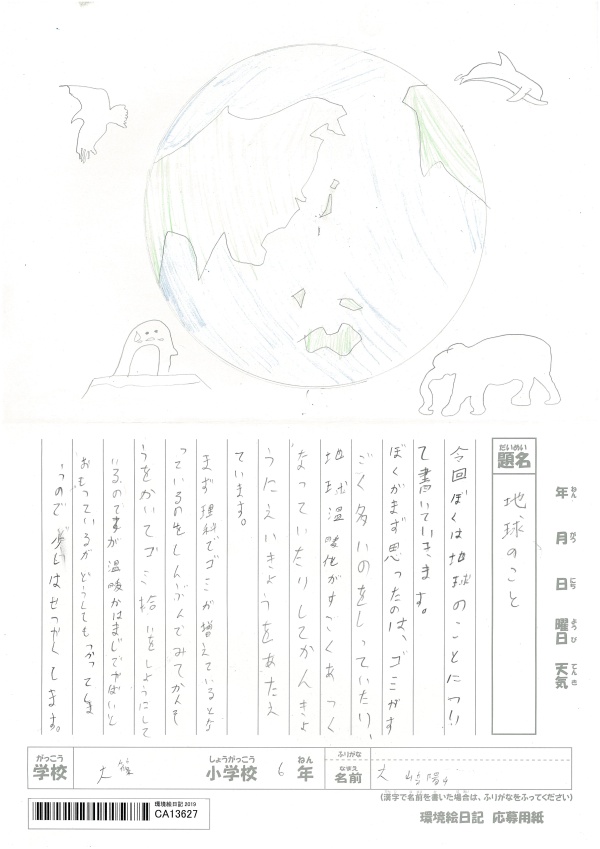 だいめい
題名
地球のこと
年 ねん
月 がつ
日 にち
曜日 ようび
天気 てんき
今回ぼくは地球のことについ
て書いていきます。
ぼくがまず思ったのは、ゴミがす
ごく多いのをしっていたり、
地球温暖化がすごくあつく
なっていたりしてかんきょ
うたえいきょうをあたえ
ています。
まず理科でゴミが増えているとな
っているのをしんぶんでみてかんそ
うをかいてゴミ拾いをしようにして
いるのですが温暖かはまじでやばいと
おもっているがどうしてもつかってしま
うので 少しはせつやくします。
がっこう
学校
しょうがっこう
小学校
6
ねん
年
ふりがな
なまえ
名前
(漢字で名前を書いた場合は、ふりがなをふってください)
環境絵日記 2019
CA13627
環境絵日記 応募用紙